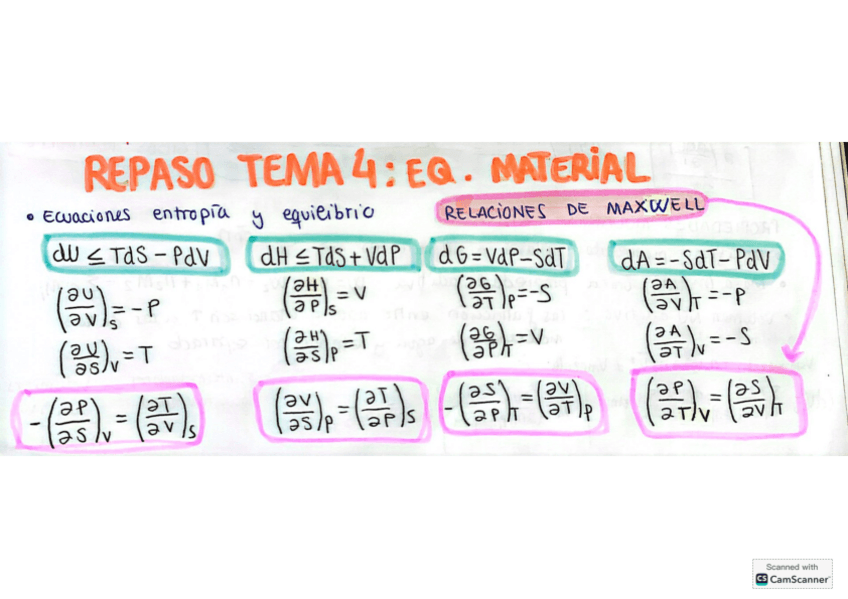 REPASO TEMA 4: EQ. MATERIAL
• Ecuaciones entropía y equilibrio
RELACIONES DE MAXWELL
dU ≤ TdS - PdV
(∂U/∂V)_S = -P
(∂U/∂S)_V = T
-(∂P/∂S)_V = (∂T/∂V)_S
dH ≤ TdS + VdP
(∂H/∂P)_S = V
(∂H/∂S)_P = T
(∂V/∂S)_P = (∂T/∂P)_S
dG = VdP - SdT
(∂G/∂T)_P = -S
(∂G/∂P)_T = V
-(∂S/∂P)_T = (∂V/∂T)_P
dA = -SdT - PdV
(∂A/∂V)_T = -P
(∂A/∂T)_V = -S
(∂P/∂T)_V = (∂S/∂V)_T
Scanned with
CS CamScanner